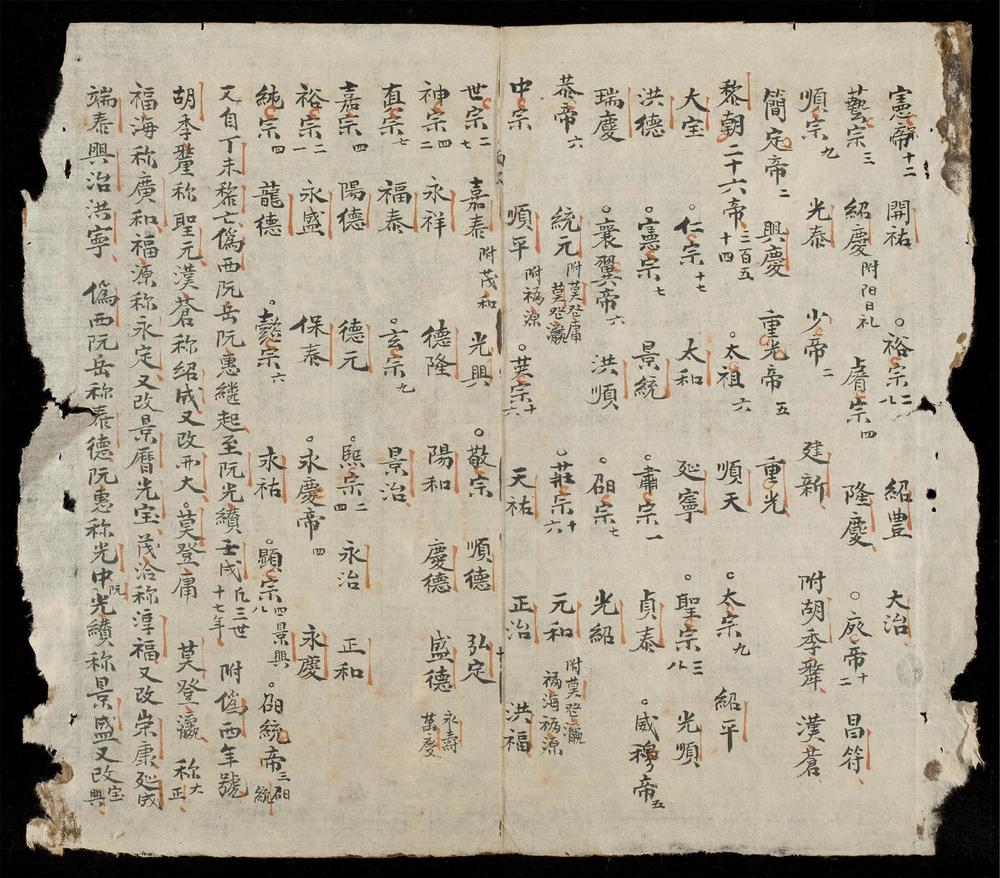 憲帝十二 開祐 裕宗二八 紹豊 大治
藝宗三 紹慶 附陽日礼 睿宗四 隆慶 廢帝十二 昌符
順宗九 光泰 少帝二 建新 附胡季犛 漢蒼
簡定帝二 興慶 重光帝五 重光
黎朝二十六帝 三百五十四 太祖六 順天 太宗九 紹平
大宝 仁宗十七 太和 延寧 聖宗三八 光順
洪德 憲宗七 景統 肅宗一 貞泰 威穆帝五
瑞慶 襄翼帝六 洪順 卲宗七 光紹
恭帝六 統元 附莫登庸莫登瀛 莊宗十六 元和 附莫登瀛福海福源
中宗 順平 附福源 英宗十六 天祐 正治 洪福
世宗二七 嘉泰 附茂和 光興 敬宗 順德 弘定
神宗四二 永祥 德隆 陽和 慶德 盛德 永壽萬慶
直宗七 福泰 玄宗九 景治
嘉宗四 陽德 德元 熙宗二四 永治 正和
裕宗二一 永盛 保泰 永慶帝四 永慶
純宗四 龍德 懿宗六 永祐 顯宗四八 景興 卲統帝三 卲統
又自丁未黎亡僞西阮岳阮惠繼起至阮光纘壬戌凡三世十七年 附僞西年號
胡季犛称聖元漢蒼称紹成又改開大 莫登庸 莫登瀛 称大正
福海称廣和福源称永定又改景曆光宝茂洽称淳福又改崇康延成
端泰興治洪寧 僞西阮岳称泰德阮惠称光中阮光纘称景盛又改宝興